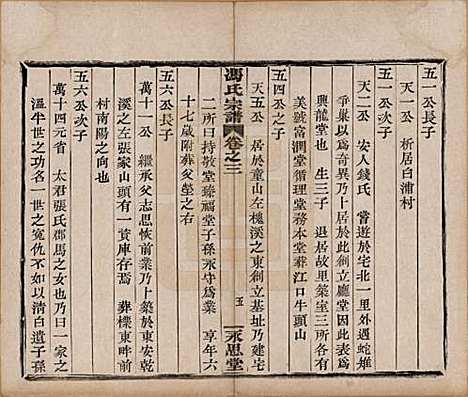 五一公長子
天一公　析居白浦村
五一公次子
天二公　安人錢氏　嘗遊於宅北一里外遇蛇雉
爭巢以爲奇異乃卜居於此創立廳堂因此表爲
興龍堂也　生三子　退居故里築室三所各有
美號富潤堂循理堂務本堂葬江口牛頭山
五四公之子
天五公　居於童山左槐溪之東創立基址乃建宅
馮氏宗譜　卷之三
五　永思堂
二所曰持敬堂臻福堂子孫永守爲業　享年六
十七歲附葬父塋之右
五六公長子
萬十一公　繼承父志思恢前業乃於東安乾
溪之左張家山頭有一莒庫存焉　葬櫟東畔前
村南陽之向也
五六公次子
萬十四元省　太君張氏郡馬之女乃曰一家之
溫半世之功名一世之冤仇不如以清白遺子孫